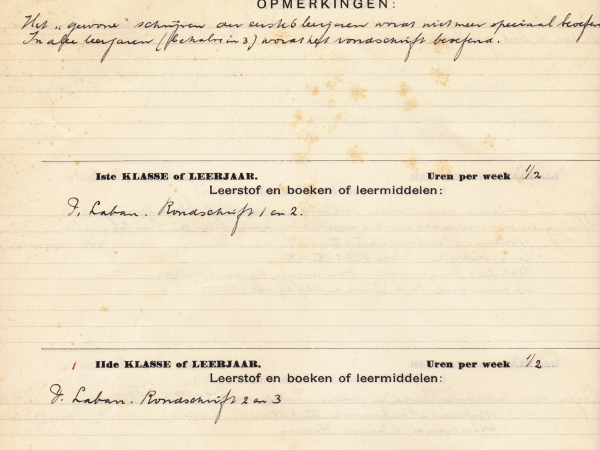 OPMERKINGEN:
Het „gewone" schrijven der eerste 6 leerjaren wordt niet meer speciaal beoefen
In alle leerjaren (behalve in 3) wordt het rondschrift beoefend.
Iste KLASSE of LEERJAAR. Uren per week 1/2
Leerstof en boeken of leermiddelen:
F. Laban. Rondschrift 1 en 2.
IIde KLASSE of LEERJAAR. Uren per week 1/2
Leerstof en boeken of leermiddelen:
F. Laban. Rondschrift 2 en 3